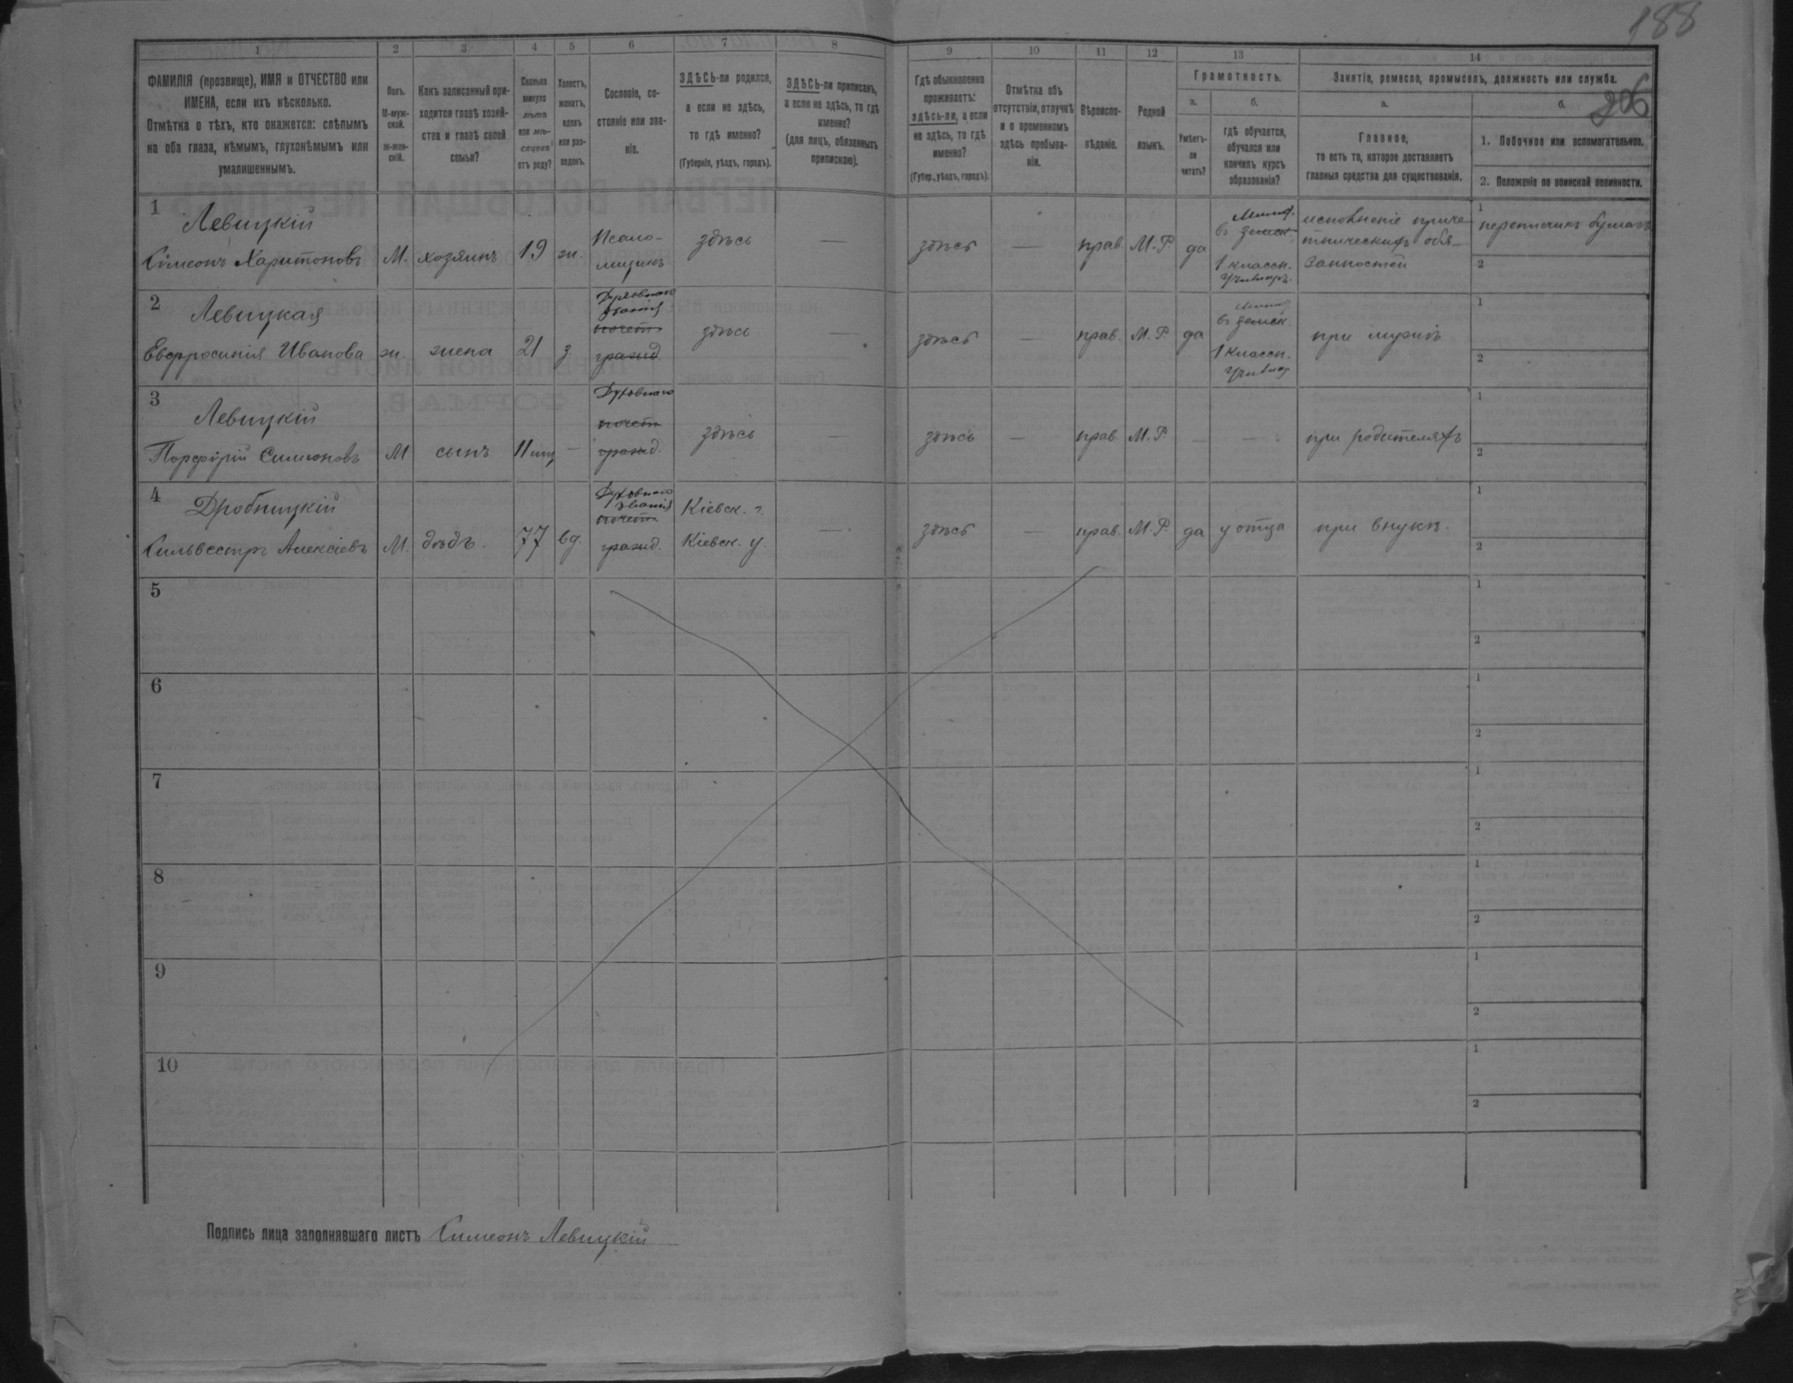 188
206
1 2 3 4 5 6 7 8 9 10 11 12 13 14
ФАМИЛІЯ (прозвище), ИМЯ и ОТЧЕСТВО или
ИМЕНА, если ихъ нѣсколько.
Отмѣтка о тѣхъ, кто окажется: слѣпымъ
на оба глаза, нѣмымъ, глухонѣмымъ или
умалишеннымъ.
Полъ.
М-муж-
ской.
ж-жен-
скій.
Какъ записанный при-
ходится главѣ хозяй-
ства и главѣ своей
семьи?
Сколько
минуло
лѣтъ
или мѣ-
сяцевъ
отъ роду?
Холостъ,
женатъ,
вдовъ
или раз-
веденъ.
Сословіе, со-
стояніе или зва-
ніе.
ЗДѢСЬ-ли родился,
а если не здѣсь,
то гдѣ именно?
(Губернія, уѣздъ, городъ).
ЗДѢСЬ-ли приписанъ,
а если не здѣсь, то гдѣ
именно?
(для лицъ, обязанныхъ
припискою).
Гдѣ обыкновенно
проживаетъ:
здѣсь-ли, а если
не здѣсь, то гдѣ
именно?
(Губер., уѣздъ, городъ).
Отмѣтка объ
отсутствіи, отлучкѣ
и о временномъ
здѣсь пребыва-
ніи.
Вѣроиспо-
вѣданіе.
Родной
языкъ.
Грамотность.
а.
Умѣетъ-
ли
читать?
б.
гдѣ обучается,
обучался или
кончилъ курсъ
образованія?
Занятіе, ремесло, промыселъ, должность или служба.
а.
Главное,
то есть то, которое доставляетъ
главныя средства для существованія.
б.
1. Побочное или вспомогательное.
2. Положеніе по воинской повинности.
1
Левицкій
Сѵмеонъ Харитоновъ М. хозяинъ 19 ж. Псало-
мщикъ здѣсь — здѣсь — прав. М.Р. да
въ земск.
1 классн.
Училищѣ.
исполненіе приче-
тническихъ обя-
занностей
1 переписчикъ бумагъ
2
2
Левицкая
Евфросинія Иванова ж. жена 21 з.
Духовнаго
званія
почетн.
гражд.
здѣсь — здѣсь — прав. М.Р. да
въ земск.
1 классн.
Училищ
при мужѣ
1
2
3
Левицкій
Порфирій Симеоновъ М сынъ 11 —
Духовнаго
почетн.
гражд.
здѣсь — здѣсь — прав. М.Р. — — при родителяхъ
1
2
4
Дробницкій
Сильвестръ Алексіевъ М. дѣдъ. 77 вд.
Духовнаго
званія
почетн.
гражд.
Кіевск. г.
Кіевск. у.
— здѣсь — прав. М.Р. да у отца при внукѣ.
1
2
5
1
2
6
1
2
7
1
2
8
1
2
9
1
2
10
1
2
Подпись лица заполнявшаго листъ Симеонъ Левицкій